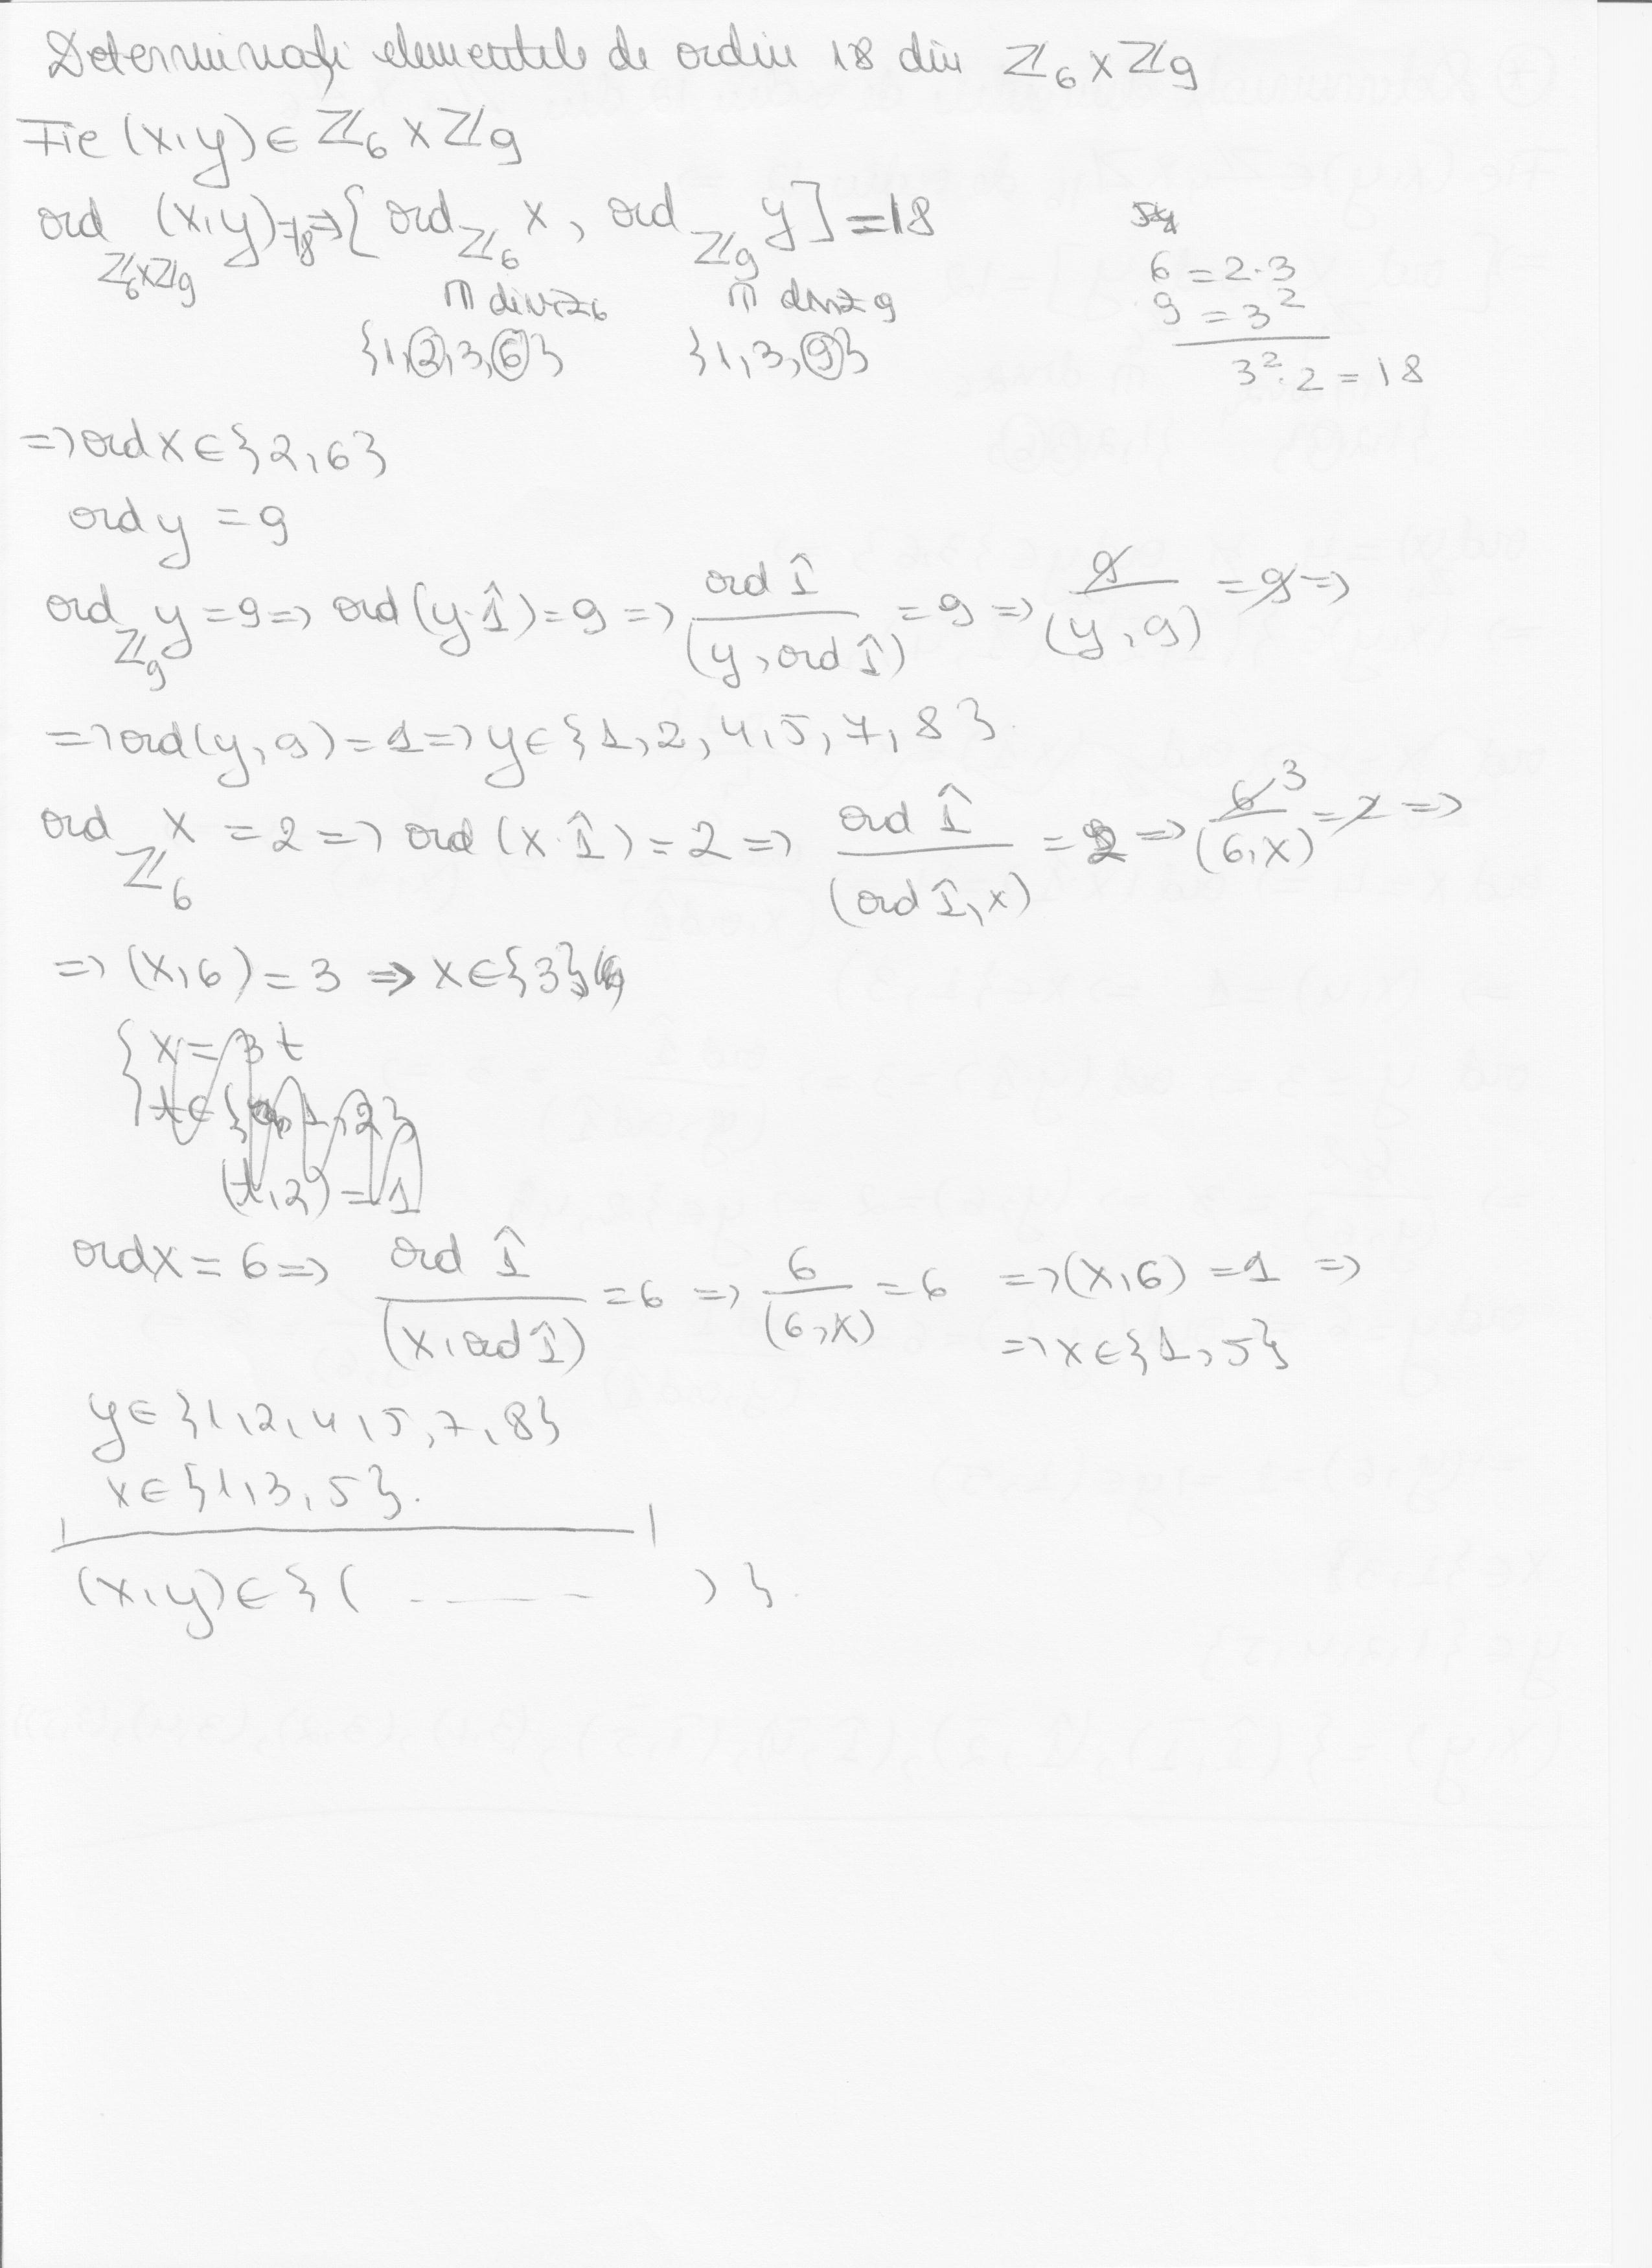 Determinați elementele de ordin 18 din ℤ₆ × ℤ₉
Fie (x,y) ∈ ℤ₆ × ℤ₉
ord_{ℤ₆×ℤ₉} (x,y) = 18 ⇒ [ ord_{ℤ₆} x , ord_{ℤ₉} y ] = 18
6 = 2·3
9 = 3²
3²·2 = 18
∩ diviz 6   ∩ diviz 9
{1,②,3,⑥}   {1,3,⑨}
⇒ ord x ∈ {2,6}
ord y = 9
ord_{ℤ₉} y = 9 ⇒ ord (y·1̂) = 9 ⇒ ord 1̂ / (y, ord 1̂) = 9 ⇒ 9 / (y,9) = 9 ⇒
⇒ ord(y,9) = 1 ⇒ y ∈ {1,2,4,5,7,8}.
ord_{ℤ₆} x = 2 ⇒ ord (x·1̂) = 2 ⇒ ord 1̂ / (ord 1̂, x) = 2 ⇒ 6 3 / (6,x) = 2 ⇒
⇒ (x,6) = 3 ⇒ x ∈ {3}
{ x = 3t
t ∈ { 1, 2}
(t,2) = 1
ord x = 6 ⇒ ord 1̂ / (x, ord 1̂) = 6 ⇒ 6 / (6,x) = 6 ⇒ (x,6) = 1 ⇒
⇒ x ∈ {1,5}
y ∈ {1,2,4,5,7,8}
x ∈ {1,3,5}.
(x,y) ∈ {( ----- )}.